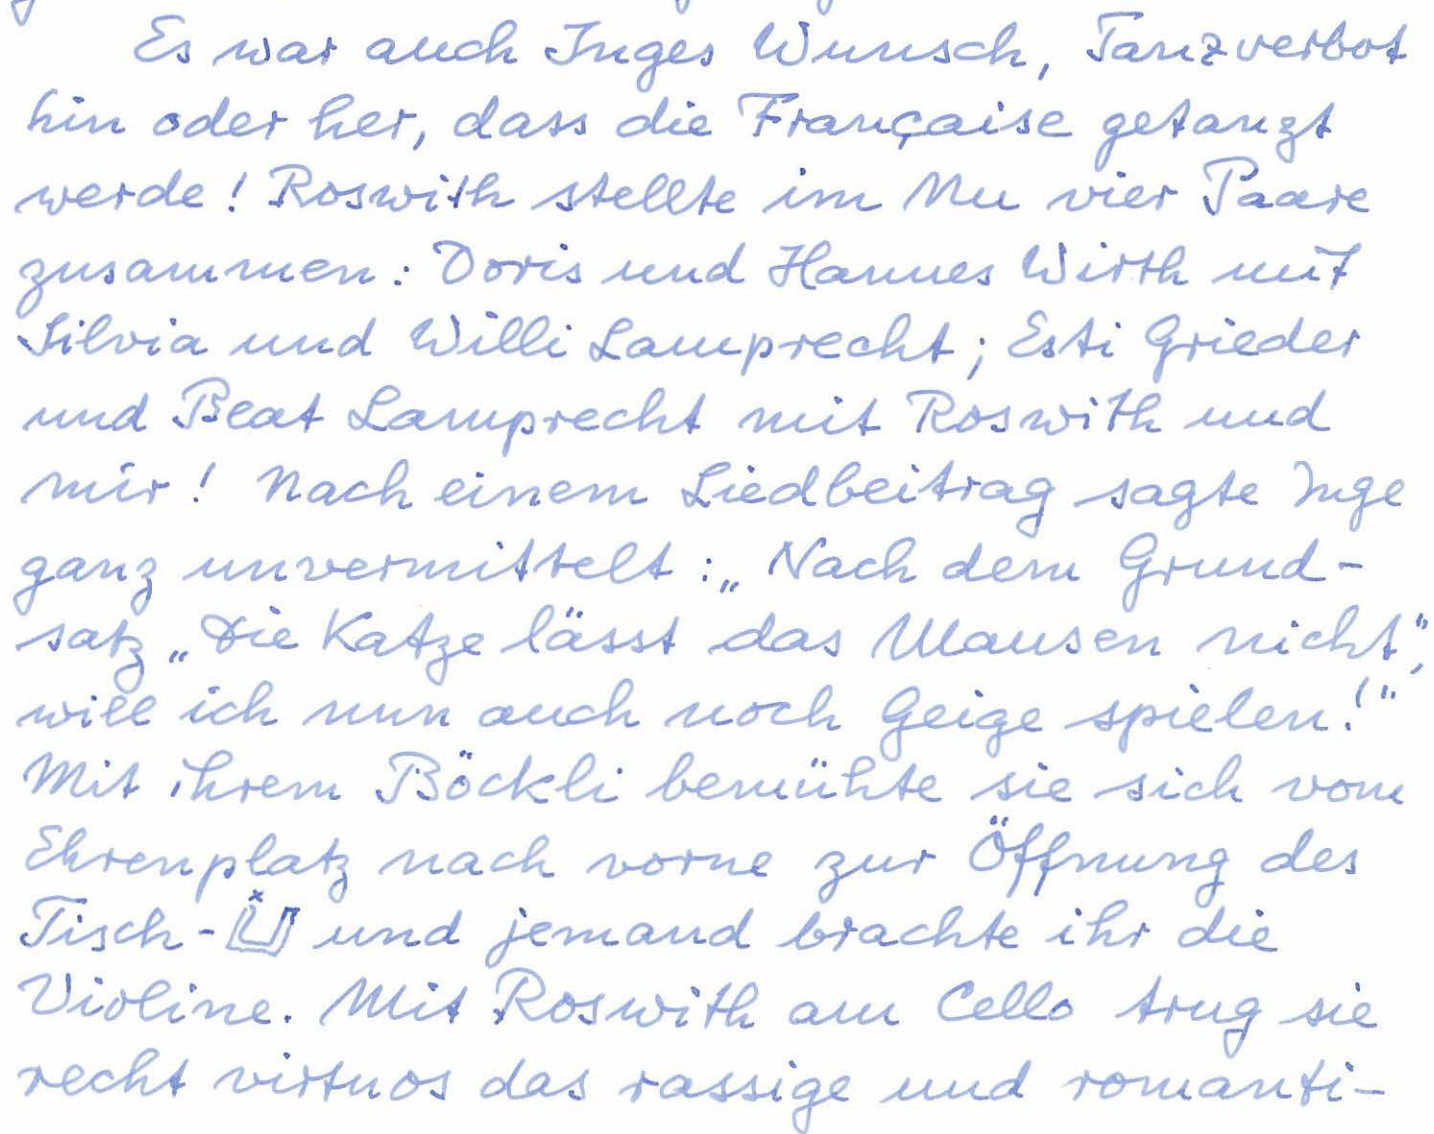 Es war auch Inges Wunsch, Tanzverbot
hin oder her, dass die Française getanzt
werde! Roswith stellte im Nu vier Paare
zusammen: Doris und Hannes Wirth mit
Silvia und Willi Lamprecht; Esti Grieder
und Beat Lamprecht mit Roswith und
mir! Nach einem Liedbeitrag sagte Inge
ganz unvermittelt: „Nach dem Grund-
satz „Die Katze lässt das Mausen nicht“,
will ich nun auch noch Geige spielen!“
Mit ihrem Böckli bemühte sie sich vom
Ehrenplatz nach vorne zur Öffnung des
Tisch-U und jemand brachte ihr die
Violine. Mit Roswith am Cello trug sie
recht virtuos das rassige und romanti-